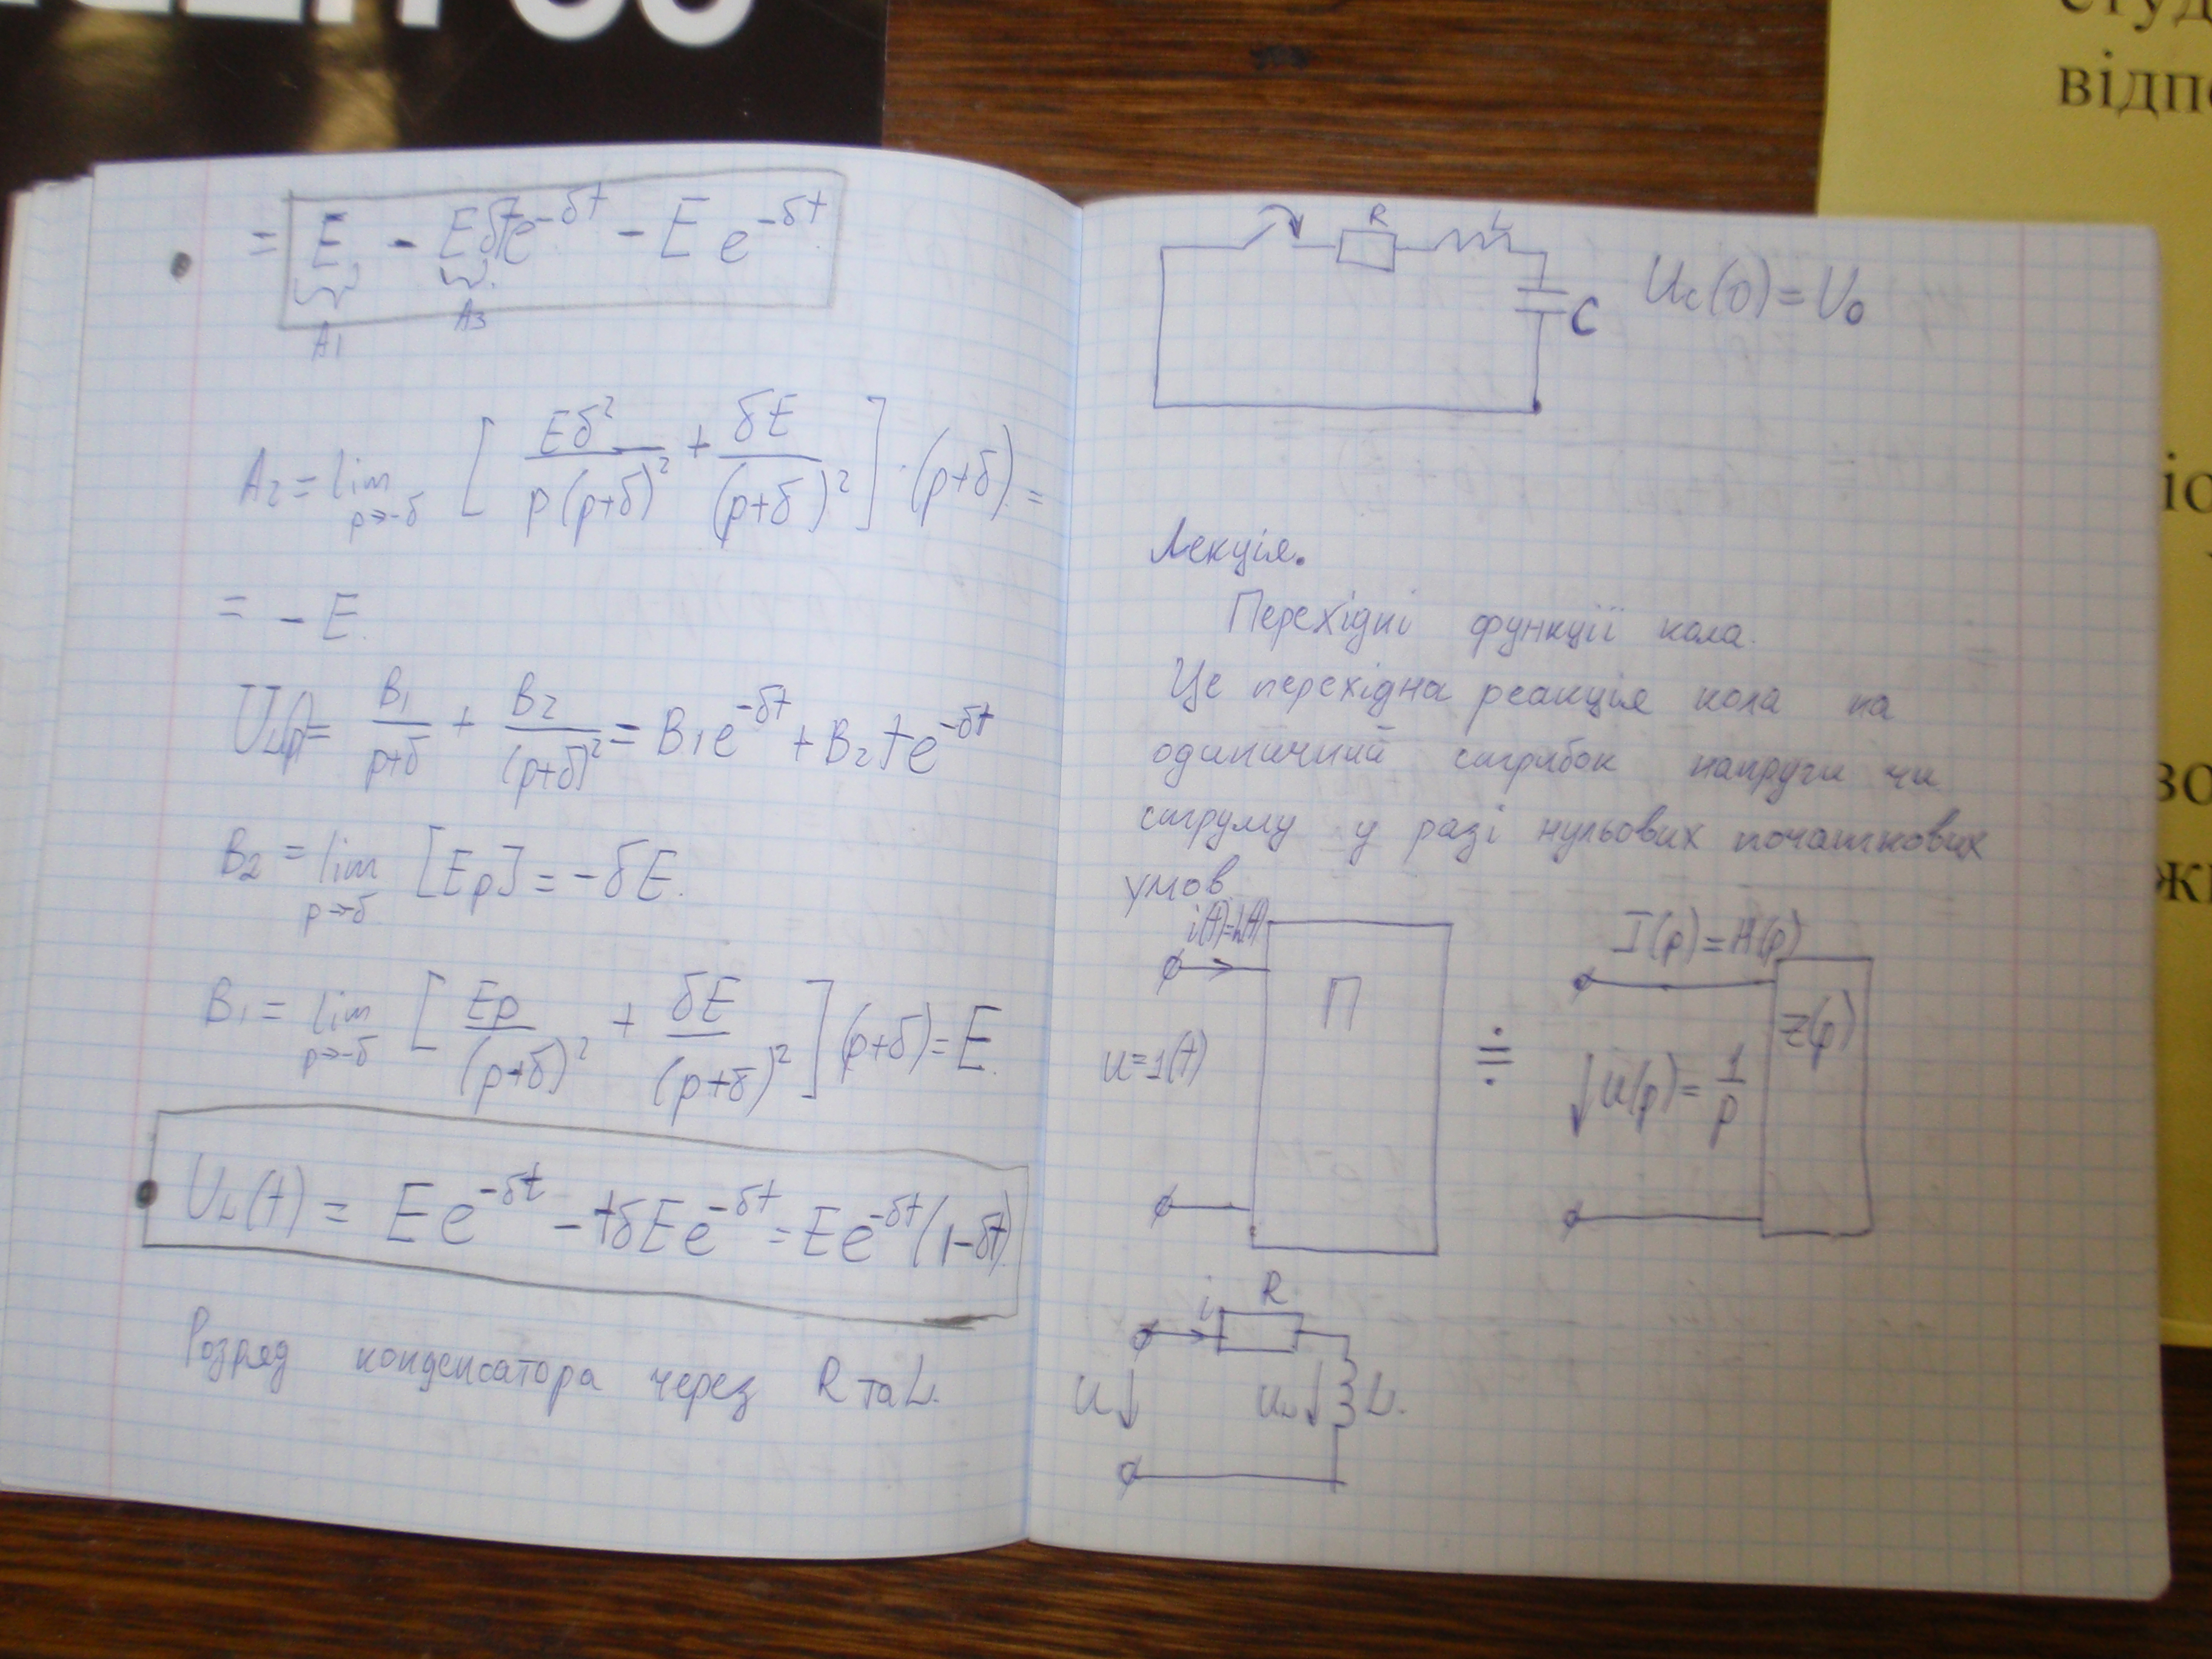 = E - Eδte^{-δt} - E e^{-δt}
A1 A3
A2 = lim p→-δ [ Eδ²/p(p+δ)² + δE/(p+δ)² ] · (p+δ) =
= - E.
U_L(p) = B1/p+δ + B2/(p+δ)² = B1e^{-δt} + B2te^{-δt}
B2 = lim p→-δ [Ep] = -δE.
B1 = lim p→-δ [ Ep/(p+δ)² + δE/(p+δ)² ] (p+δ) = E.
U_L(t) = Ee^{-δt} - tδEe^{-δt} = Ee^{-δt}(1-δt)
Розряд конденсатора через R та L.
R L
C Uc(0) = U0
Лекція.
Перехідні функції кола.
Це перехідна реакція кола на
одиничний стрибок напруги чи
струму у разі нульових початкових
умов
i(t)=h(t) I(p)=H(p)
П Z(p)
u=1(t) ≑ U(p)= 1/p
i R
U U_L L.
студ
відпо
іс
во
жи